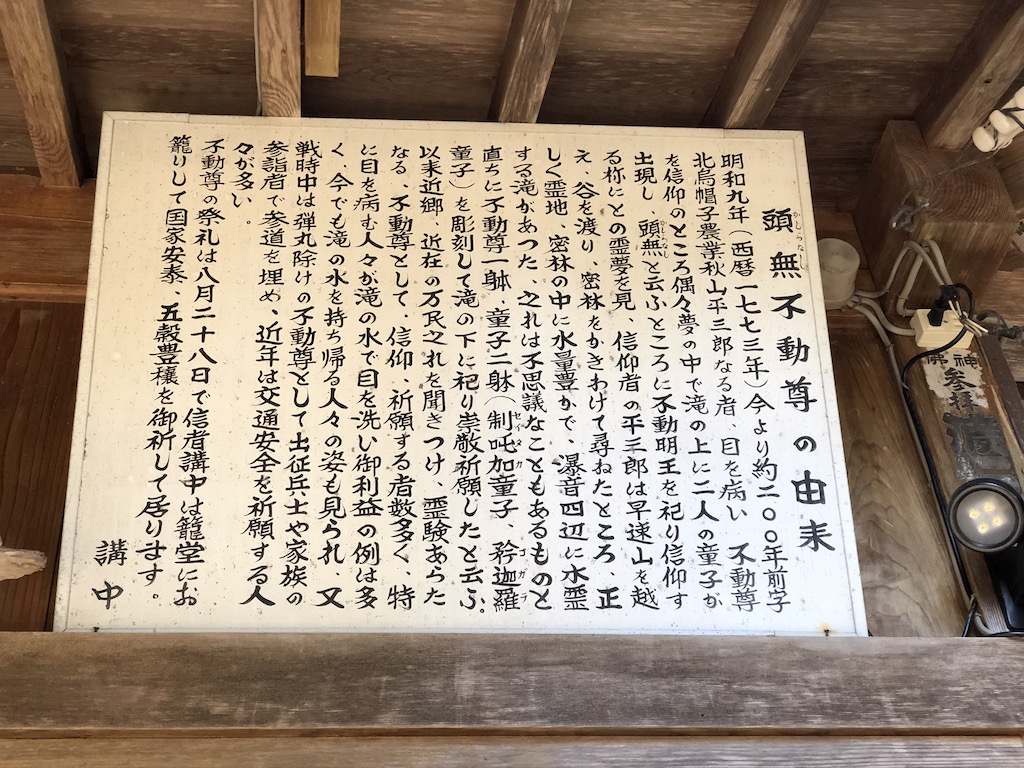 頭無不動尊の由来
かしらなし
明和九年（西暦一七七三年）今より約二〇〇年前字
北烏帽子農業秋山平三郎なる者、目を病い　不動尊
を信仰のところ偶々夢の中で滝の上に二人の童子が
出現し、頭無と云ふところに不動明王を祀り信仰す
かしらなし
る称にとの霊夢を見、信仰者の平三郎は早速山を越
え、谷を渡り、密林をかきわけて尋ねたところ、正
しく霊地、密林の中に水量豊かで、瀑音四辺に水霊
する滝があつた、之れは不思議なこともあるものと
直ちに不動尊一躰、童子二躰（制吒加童子、矜迦羅
セイタカ
コガラ
童子）を彫刻して滝の下に祀り崇敬祈願したと云ふ。
以来近郷、近在の万民之れを聞きつけ、霊験あらた
なる、不動尊として、信仰、祈願する者数多く、特
に目を病む人々が滝の水で目を洗い御利益の例は多
く、今でも滝の水を持ち帰る人々の姿も見られ、又
戦時中は弾丸除けの不動尊として出征兵士や家族の
参詣者で参道を埋め、近年は交通安全を祈願する人
々が多い。
不動尊の祭礼は八月二十八日で信者講中は籠堂にお
籠りして国家安泰、五穀豊穣を御祈して居ります。
講中
神佛
参拝